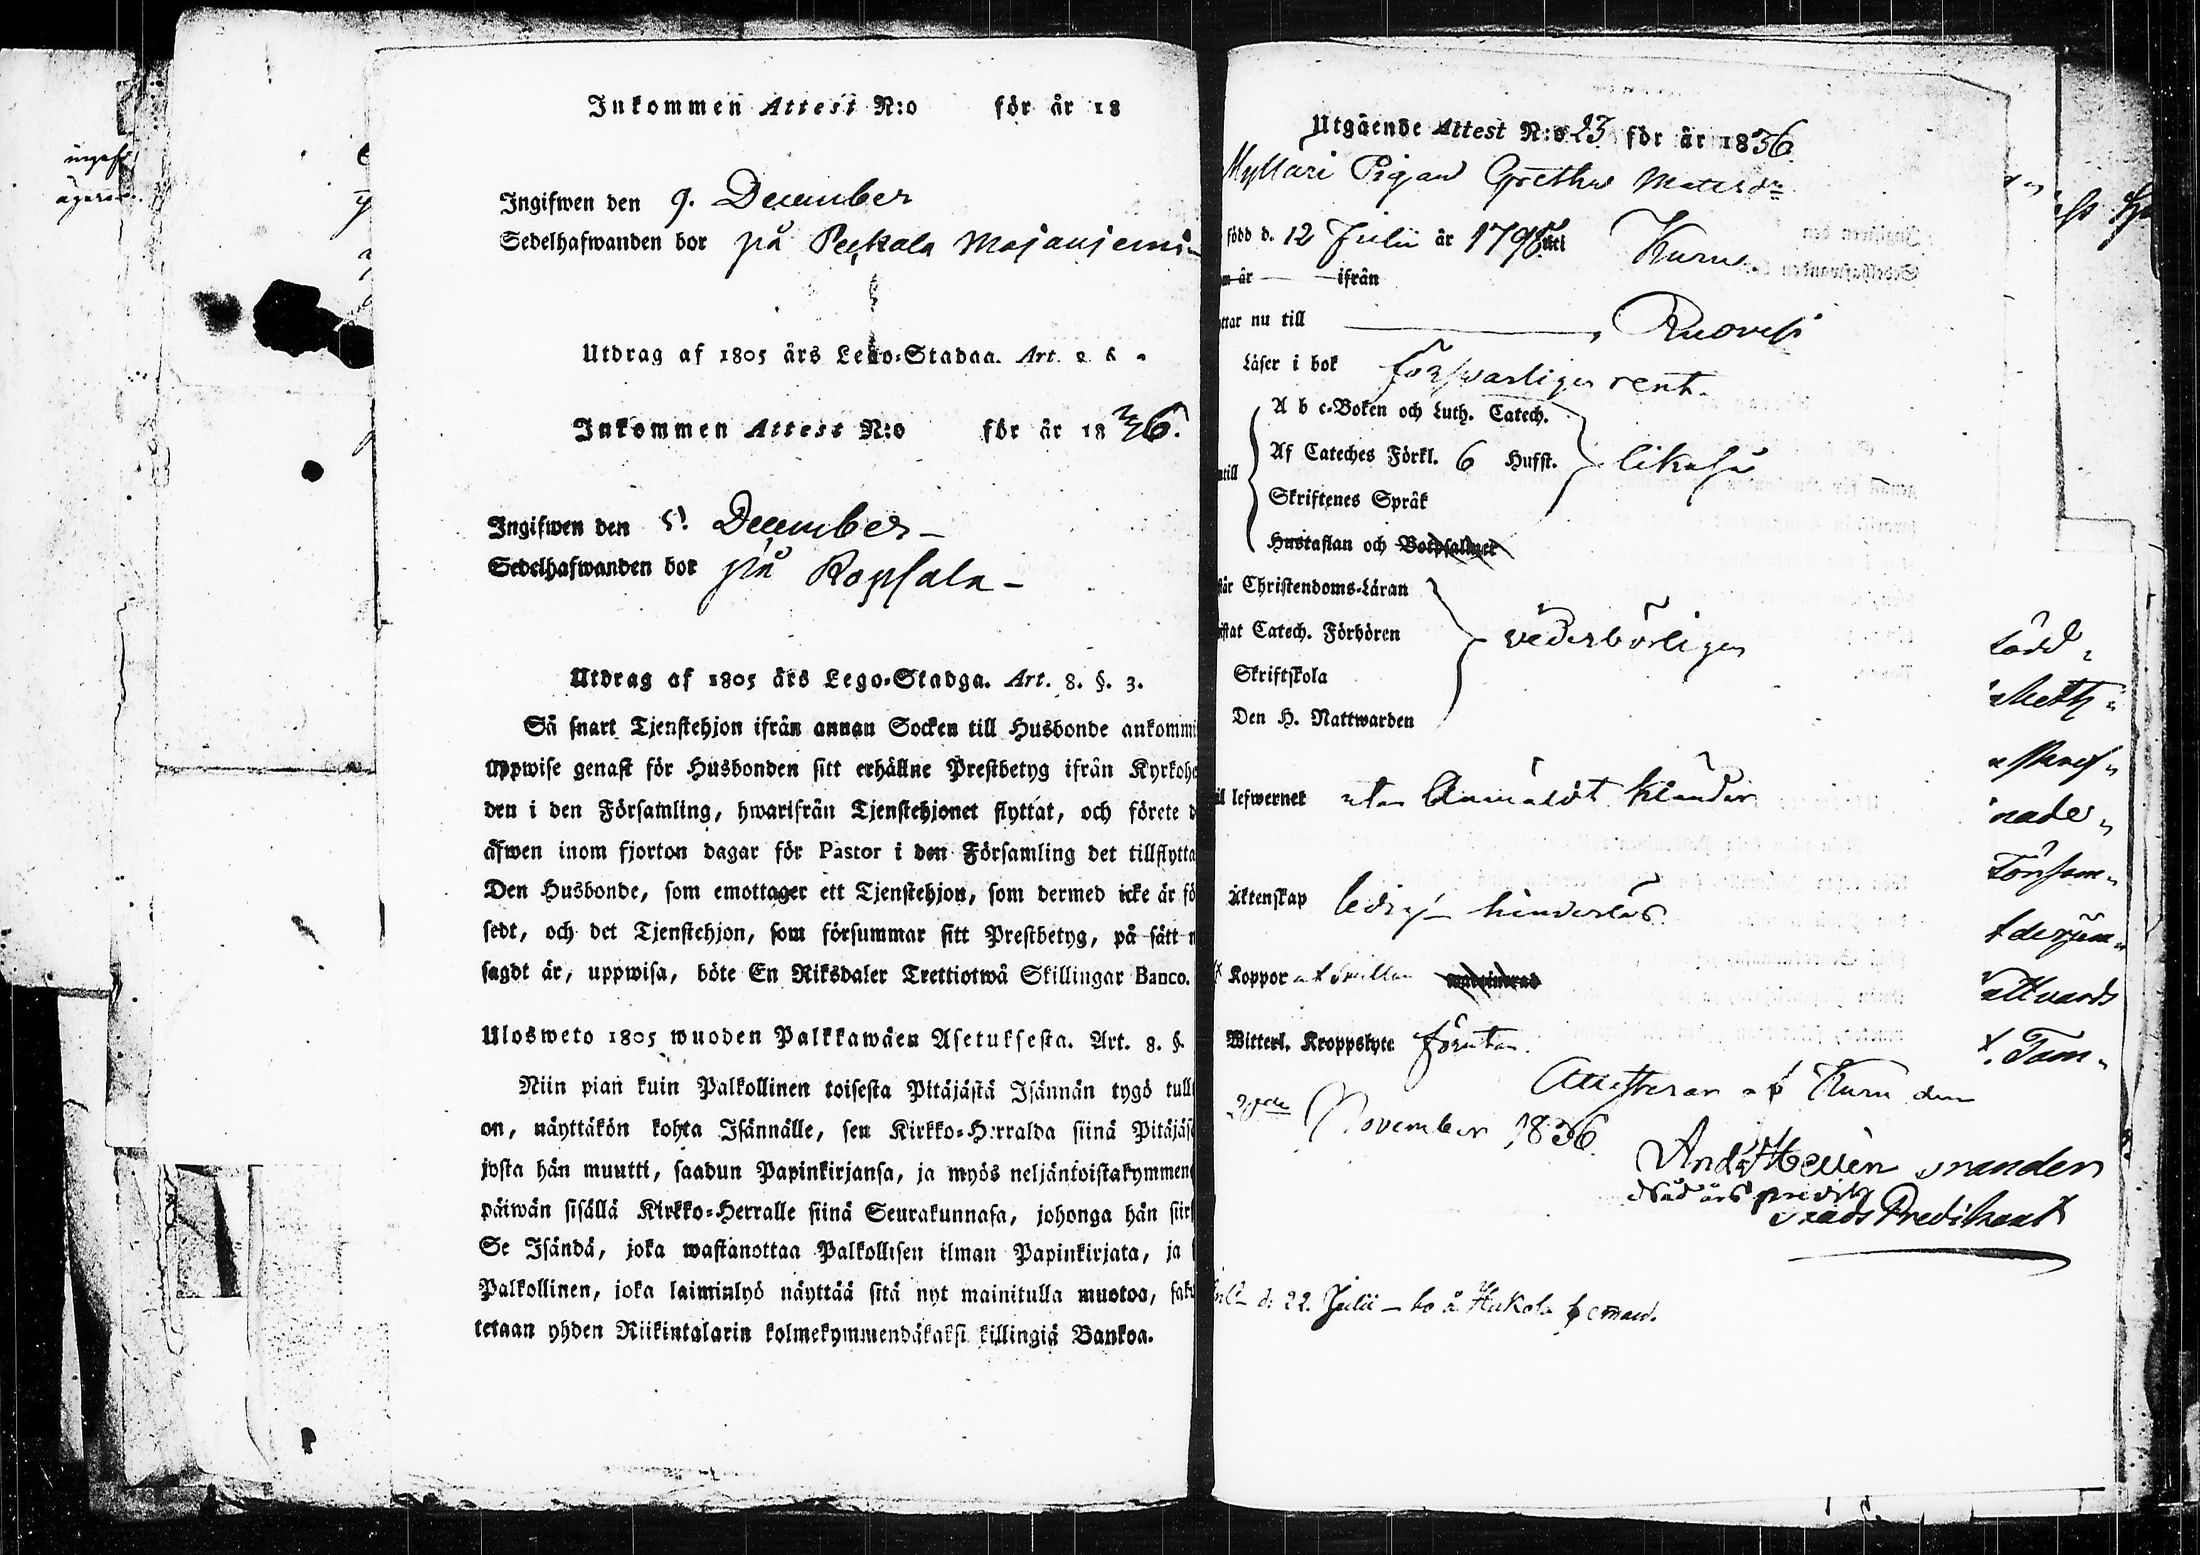 Inkommen Attest N:o för år 18
Ingifwen den 9. December
Sedelhafwanden bor på Pekkala
Utdrag af 1805 års Lego-Stadga. Art.
Inkommen Attest N:o för år 1836.
Ingifwen den 5. December
Sedelhafwanden bor på Ropsala
Utdrag af 1805 års Lego-Stadga. Art. 8. §. 3.
Så snart Tjenstehjon ifrån annan Socken till Husbonde ankommi
uppwise genast för Husbonden sitt erhållne Prestbetyg ifrån Kyrkohe
den i den Församling, hwarifrån Tjenstehjonet flyttat, och förete d
äfwen inom fjorton dagar för Pastor i den Församling det tillflytta
Den Husbonde, som emottager ett Tjenstehjon, som dermed icke är fö
sedt, och det Tjenstehjon, som försummar sitt Prestbetyg, på sätt n
sagdt är, uppwisa, böte En Riksdaler Trettiotwå Skillingar Banco.
Ulosweto 1805 wuoden Palkkawäen Asetuksesta. Art. 8. §.
Niin pian kuin Palkollinen toisesta Pitäjästä Isännän tygö tull
on, näyttäkön kohta Isännälle, sen Kirkko-Herralda siinä Pitäjäs
josta hän muutti, saadun Papinkirjansa, ja myös neljäntoistakymmen
päiwän sisällä Kirkko-Herralle siinä Seurakunnasa, johonga hän siir
Se Isändä, joka wastanottaa Palkollisen ilman Papinkirjata, ja
Palkollinen, joka laiminlyö näyttää sitä nyt mainitulla muotoa, sak
tetaan yhden Riikintalarin kolmekymmendäkaksi killingiä Bankoa.
Utgående Attest N:o 23 för år 1836.
Myllari Pigan Gretha Matsdr
född d. 12 Julii år 1798 uti Kuru
år ifrån
ttar nu till Ruovesi
Läser i bok förswarligen rent.
A b c-Boken och Luth. Catech.
Af Cateches Förkl. 6 Hufst. likaså
Skriftenes Språk
Hustaflan och Botpsalmer
Christendoms-Läran
Catech. Förhören vederbörligen
Skriftskola
Den H. Nattwarden
lefwernet utan anmäldt klander
Äktenskap ledig hinderlös
Koppor
Witterl. Kroppslyte förutan.
Attesterar af Kuru den
November 1836.
Nådårs
d. 22. Julii